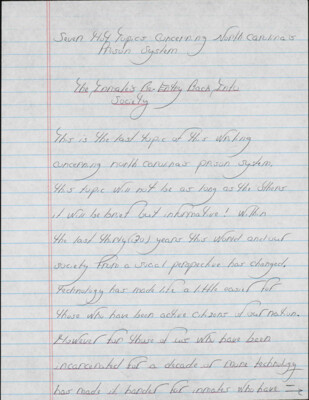 Seven Hot Topics Concerning North Carolina's
Prison System
The Inmate's Re-Entry Back Into
Society
This is the last topic of this writing
concerning north carolina's prison system.
this topic will not be as long as the others
it will be brief but informative! Within
the last thirty (30) years this world and our
society from a social perspective has changed.
Technology has made life a little easier for
those who have been active citizens of our nation.
However for those of us who have been
incarcerated for a decade or more technology
has made it harder for inmates who have